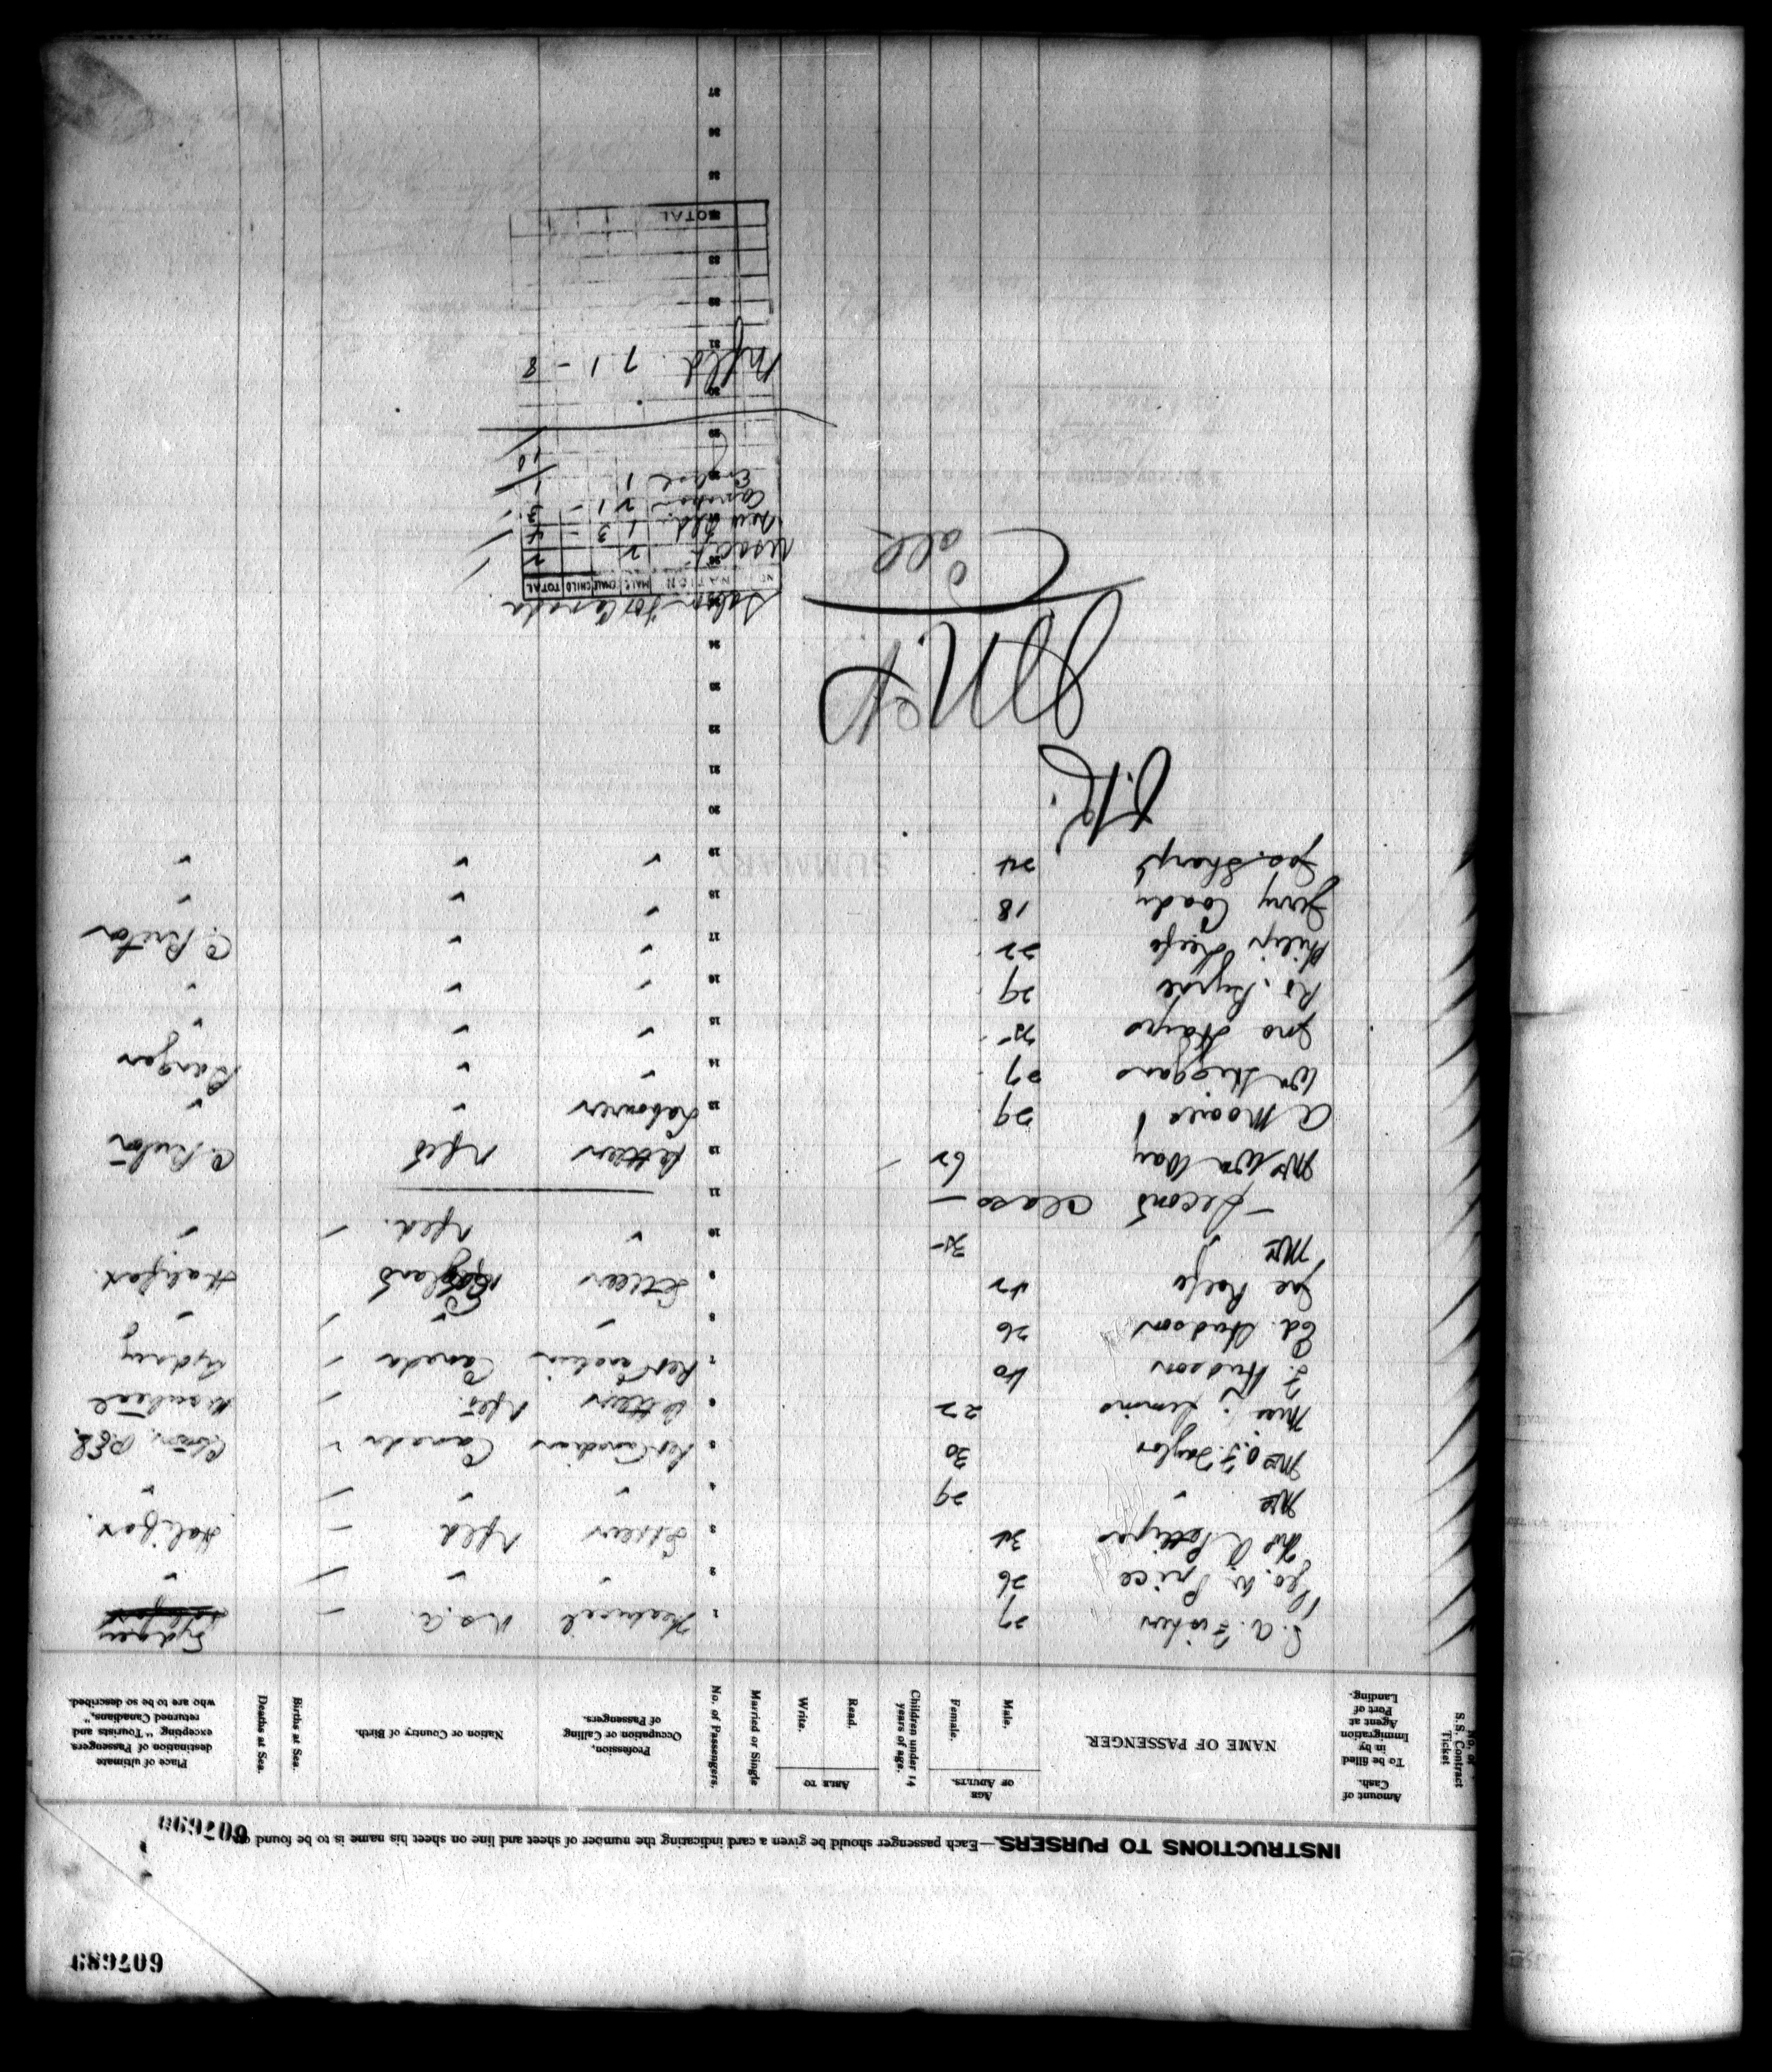 607689
607690
INSTRUCTIONS TO PURSERS.—Each passenger should be given a card indicating the number of sheet and line on sheet his name is to be found on
No. of S.S. Contract Ticket
Amount of Cash. To be filled in by Immigration Agent at Port of Landing.
NAME OF PASSENGER
AGE OF ADULTS.
Male.
Female.
Children under 14 years of age.
ABLE TO
Read.
Write.
Married or Single
No. of Passengers.
Profession, Occupation or Calling of Passengers.
Nation or Country of Birth.
Births at Sea.
Deaths at Sea.
Place of ultimate destination of Passengers excepting "Tourists and returned Canadians," who are to be so described.
27 1 U.S.A. Sydney
Geo. W. Price 26 2 " " "
34 3 Settler Nfld Halifax.
Mrs " 29 4 " " "
Mrs O. F. Taylor 30 5 Ret Canadian Canada
Miss Simms 22 6 Settler Nfld. Montreal
F. Hudson 40 7 Ret Canadian Canada Sydney
Ed. Hudson 26 8 " " "
Joe Keefe 42 9 Settler England Halifax.
Mrs " 35 10 " Nfld. "
— Second Class — 11
Mrs Wm Day 62 12 Settler Nfld C. Breton
A Moores 29 13 Labourer " "
Wm Higgans 27 14 " " Bangor
Jno Hayes 25 15 " " "
Rd. Byrne 29 16 " " "
Philip Keefe 22 17 " " C. Breton
Jerry Coady 18 18 " " "
Jas. Sharp 24 19 " " "
20
21
22
23
24
for Canada
NO NATION MALE FEMALE CHILD TOTAL
USA 2 2
New fld. 1 3 - 4
Canadian 2 1 - 3
England 1 1
10
Nfld 7 1 - 8
31
32
33
TOTAL
35
36
37